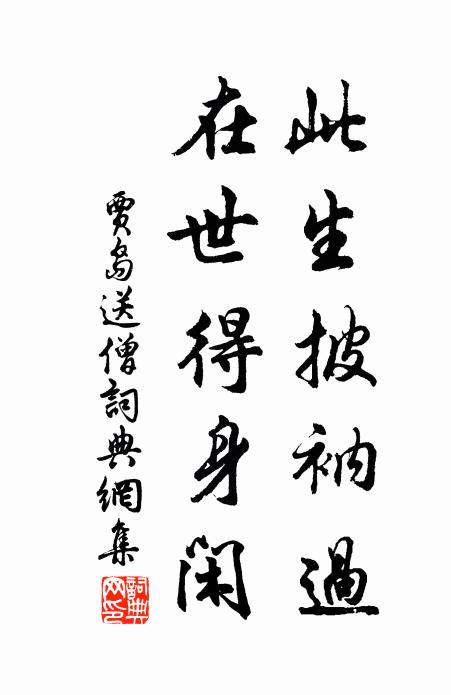 此生披衲過
在世得身閑
賈島送僧詞典網集
詞典網印